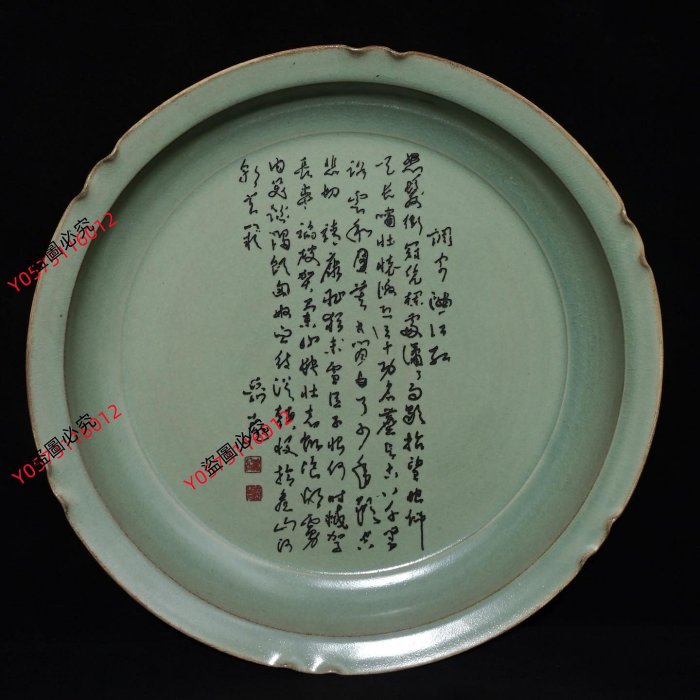 調寄滿江紅
怒髮衝冠凭欄處瀟瀟雨歇抬望眼仰
天長嘯壯懷激烈三十功名塵與土八千里
路雲和月莫等閒白了少年頭空
悲切靖康恥猶未雪臣子恨何時滅駕
長車踏破賀蘭山缺壯志飢餐胡虜
肉笑談渴飲匈奴血待從頭收拾舊山河
朝天闕
岳飛
盜圖必究
盜圖必究
盜圖必究